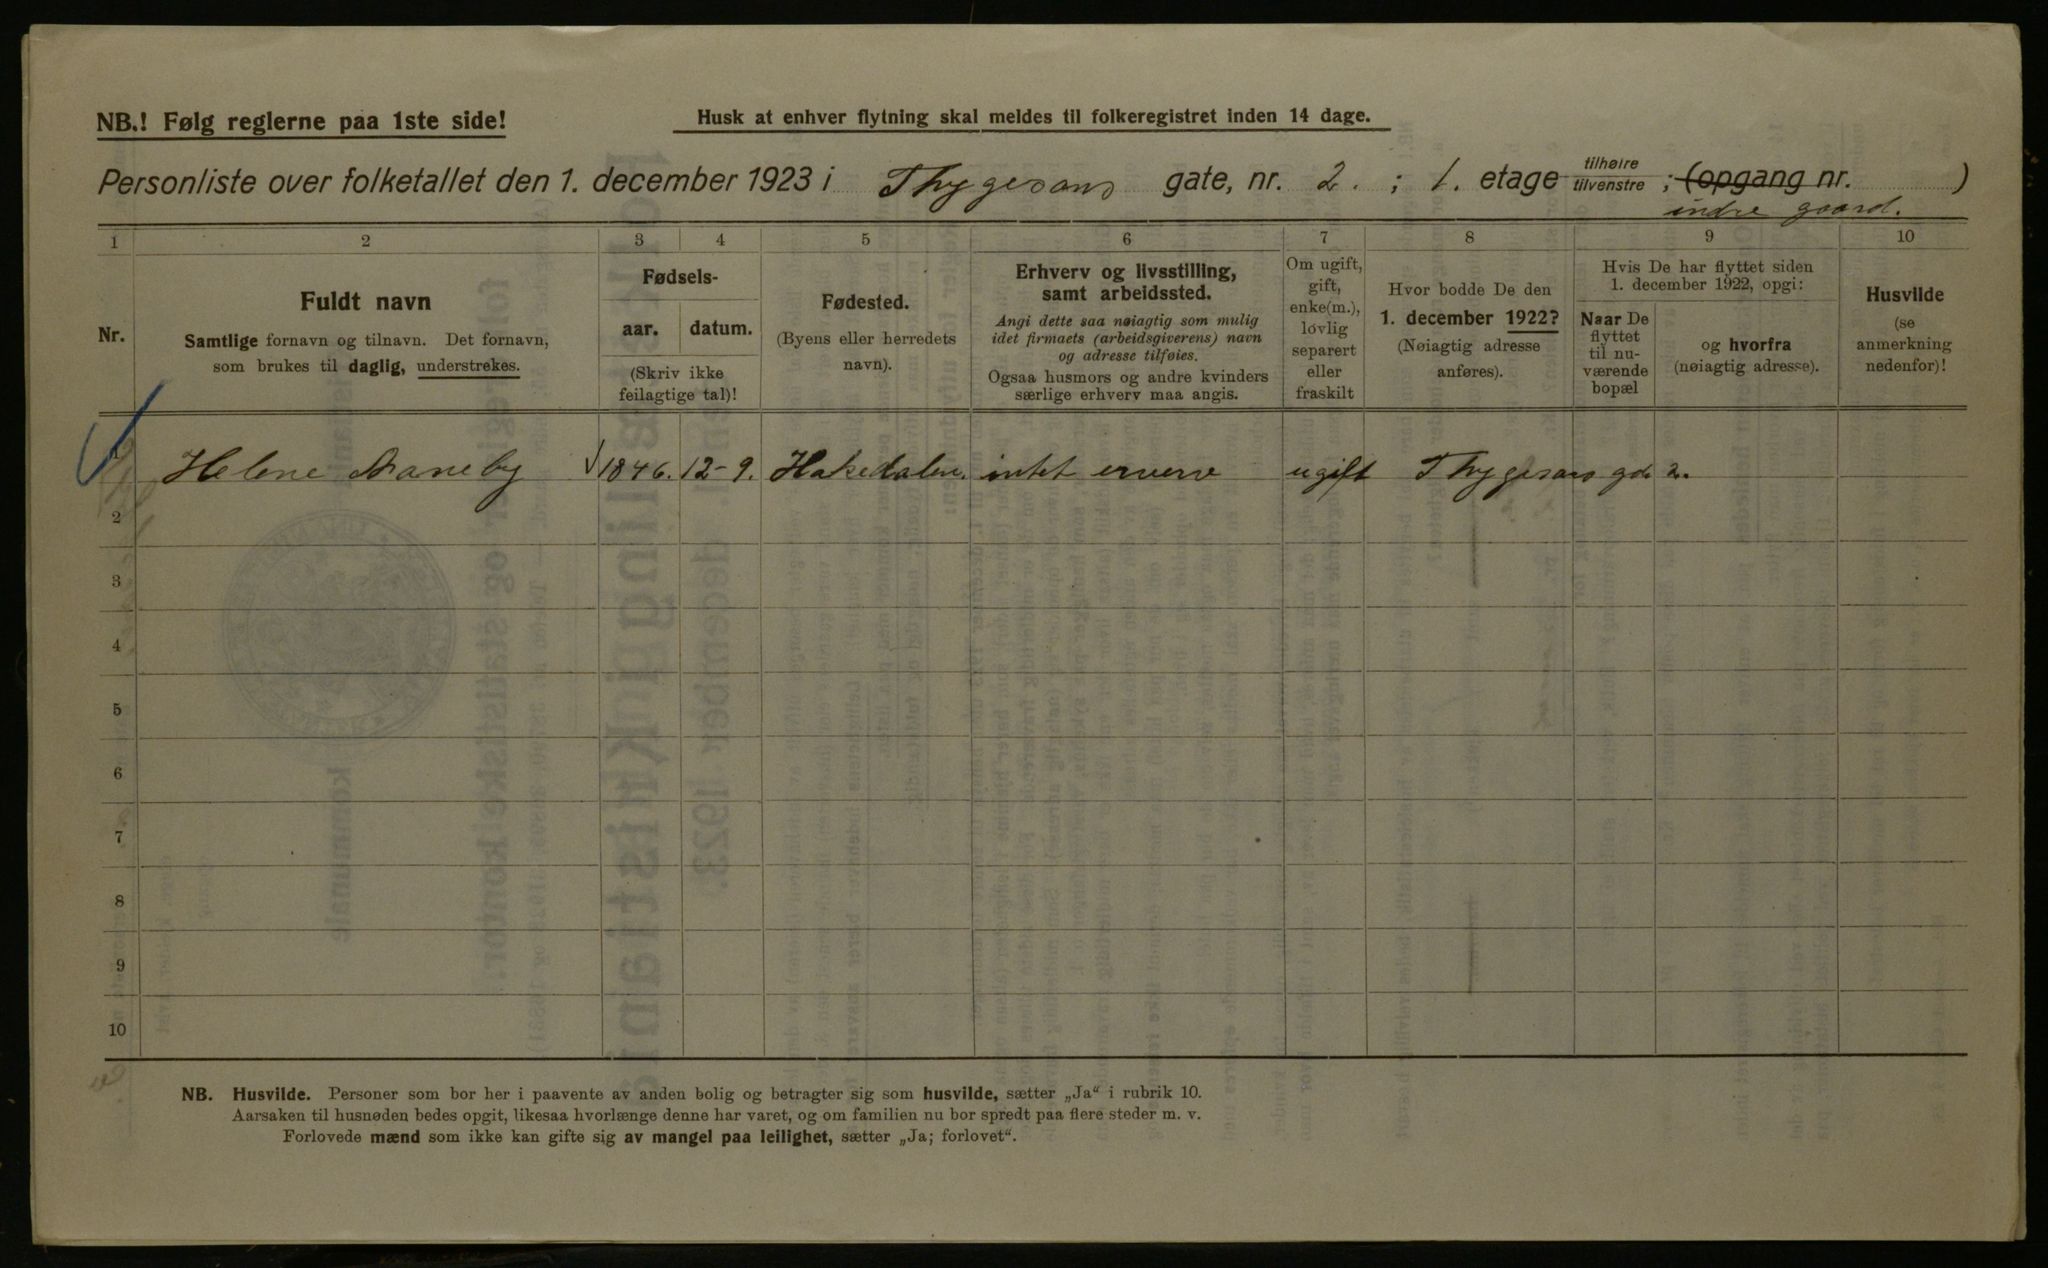 NB.! Følg reglerne paa 1ste side!
Husk at enhver flytning skal meldes til folkeregistret inden 14 dage.
Personliste over folketallet den 1. december 1923 i Thygesons gate, nr. 2. ; 1. etage tilhøire tilvenstre ; (opgang nr. )
indre gaard.
1 2 3 4 5 6 7 8 9 10
Nr.
Fuldt navn
Samtlige fornavn og tilnavn. Det fornavn,
som brukes til daglig, understrekes.
Fødsels-
aar. datum.
(Skriv ikke
feilagtige tal)!
Fødested.
(Byens eller herredets
navn).
Erhverv og livsstilling,
samt arbeidssted.
Angi dette saa nøiagtig som mulig
idet firmaets (arbeidsgiverens) navn
og adresse tilføies.
Ogsaa husmors og andre kvinders
særlige erhverv maa angis.
Om ugift,
gift,
enke(m.),
lovlig
separert
eller
fraskilt
Hvor bodde De den
1. december 1922?
(Nøiagtig adresse
anføres).
Hvis De har flyttet siden
1. december 1922, opgi:
Naar De
flyttet
til nu-
værende
bopæl
og hvorfra
(nøiagtig adresse).
Husvilde
(se
anmerkning
nedenfor)!
Helene Maneby 1846. 12-9. Hakedalen. intet erverv ugift Thygesons gd. 2.
2
3
4
5
6
7
8
9
10
NB. Husvilde. Personer som bor her i paavente av anden bolig og betragter sig som husvilde, sætter „Ja“ i rubrik 10.
Aarsaken til husnøden bedes opgit, likesaa hvorlænge denne har varet, og om familien nu bor spredt paa flere steder m. v.
Forlovede mænd som ikke kan gifte sig av mangel paa leilighet, sætter „Ja; forlovet“.